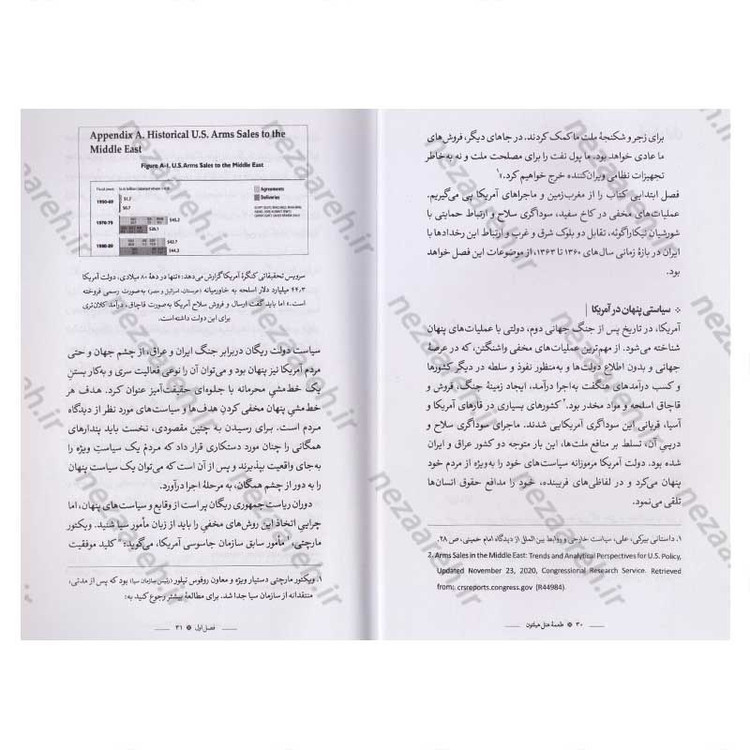 برای زجر و شکنجهٔ ملت ما کمک کردند. در جاهای دیگر، فروش‌های
ما عادی خواهد بود. ما پول نفت را برای مصلحت ملت و نه به‌خاطر
تجهیزات نظامی ویران‌کننده خرج خواهیم کرد.»۱
فصل ابتدایی کتاب را از مغرب‌زمین و ماجراهای آمریکا پی می‌گیریم.
عملیات‌های مخفی در کاخ سفید، سوداگری سلاح و ارتباط حمایتی با
شورشیان نیکاراگوئه، تقابل دو بلوک شرق و غرب و ارتباط این رخدادها با
ایران در بازهٔ زمانی سال‌های ۱۳۶۰ تا ۱۳۶۳، از موضوعات این فصل خواهد
بود.
سیاستی پنهان در آمریکا
آمریکا، در تاریخ پس از جنگ جهانی دوم، دولتی با عملیات‌های پنهان
شناخته می‌شود. از مهم‌ترین عملیات‌های مخفی واشنگتن، که در عرصهٔ
جهانی و بدون اطلاع دولت‌ها و به‌منظور نفوذ و سلطه در دیگر کشورها
و کسب درآمدهای هنگفت به‌اجرا درآمد، ایجاد زمینهٔ جنگ، فروش و
قاچاق اسلحه و مواد مخدر بود.۲ کشورهای بسیاری در قاره‌های آمریکا و
آسیا، قربانی این سوداگری آمریکایی شدند. ماجرای سوداگری سلاح و
درپی آن، تسلط بر منافع ملت‌ها، این بار متوجه دو کشور عراق و ایران
شده بود. دولت آمریکا مرموزانه سیاست‌های خود را به‌ویژه از مردم خود
پنهان می‌کرد و در لفاظی‌های فریبنده، خود را مدافع حقوق انسان‌ها
تلقی می‌نمود.
۱. داستانی بیرکی، علی، سیاست خارجی و روابط بین‌الملل از دیدگاه امام خمینی، ص ۲۸.
2. Arms Sales in the Middle East: Trends and Analytical Perspectives for U.S. Policy,
Updated November 23, 2020, Congressional Research Service. Retrieved
from: crsreports.congress.gov (R44984).
۳۰ طعمهٔ هتل هیلتون
Appendix A. Historical U.S. Arms Sales to the
Middle East
Figure A-1. U.S. Arms Sales to the Middle East
Agreements
Deliveries
1950-69 $1.2
$0.7
1970-79 $45.2
$26.1
1980-89 $42.7
$44.3
سرویس تحقیقاتی کنگرهٔ آمریکا گزارش می‌دهد: «تنها در دههٔ ۸۰ میلادی، دولت آمریکا
۴۴٫۳ میلیارد دلار اسلحه به خاورمیانه (عربستان، اسرائیل و مصر) به‌صورت رسمی فروخته
است.» اما باید گفت ارسال و فروش سلاح آمریکا به‌صورت قاچاق، درآمد کلان‌تری
برای این دولت داشته‌است.
سیاست دولت ریگان دربرابر جنگ ایران و عراق، از چشم جهان و حتی
مردم آمریکا نیز پنهان بود و می‌توان آن را نوعی فعالیت سری و به‌کار بستنِ
یک خط‌مشی محرمانه با جلوه‌ای حقیقت‌آمیز عنوان کرد. هدف هر
خط‌مشیِ پنهان مخفی کردنِ هدف‌ها و سیاست‌های مورد نظر از دیدگاه
مردم است. برای رسیدن به چنین مقصودی، نخست باید پندارهای
همگانی را چنان مورد دستکاری قرار داد که مردم یک سیاستِ ویژه را
به‌جای واقعیت بپذیرند و پس از آن است که می‌توان یک سیاست پنهان
را به دور از چشم همگان، به مرحلهٔ اجرا درآورد.
دوران ریاست جمهوری ریگان پر است از وقایع و سیاست‌های پنهان، اما
چراییِ اتخاذ این روش‌های مخفی را باید از زبان مأمور سیا شنید. ویکتور
مارچتی،۱ مأمور سابق سازمان جاسوسی آمریکا، می‌گوید: «کلید موفقیت
۱. ویکتور مارچتی دستیار ویژه و معاون روفوس تیلور (رئیس سازمان سیا) بود که پس از مدتی،
منتقدانه از سازمان سیا جدا شد. برای مطالعهٔ بیشتر رجوع کنید به:
فصل اول ۳۱
nezaareh.ir